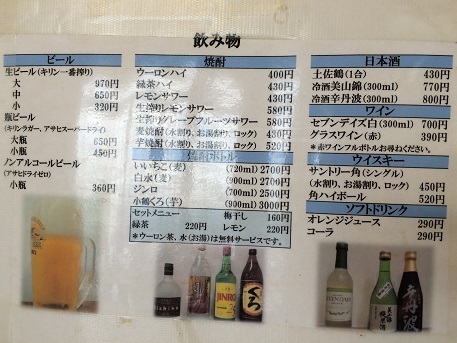 飲み物
ビール
生ビール(キリン一番搾り)
大 970円
中 550円
小 320円
瓶ビール
(キリンラガー、アサヒスーパードライ)
大瓶 650円
小瓶 450円
ノンアルコールビール
(アサヒドライゼロ)
小瓶 360円
焼酎
ウーロンハイ 400円
緑茶ハイ 430円
レモンサワー 430円
生搾りレモンサワー 580円
生搾りグレープフルーツサワー 580円
麦焼酎(水割り、お湯割り、ロック) 430円
芋焼酎(水割り、お湯割り、ロック) 520円
焼酎ボトル
いいちこ(麦) (720ml) 2700円
白水(麦) (900ml) 2700円
ジンロ (700ml) 2500円
小鶴くろ(芋) (900ml) 3000円
セットメニュー 梅干し 160円
緑茶 220円 レモン 220円
*ウーロン茶、水(お湯)は無料サービスです。
日本酒
土佐鶴(1合) 430円
冷酒美山錦(300ml) 770円
冷酒辛丹波(300ml) 800円
ワイン
セブンデイズ白(300ml) 700円
グラスワイン(赤) 390円
*赤ワインフルボトルお尋ねください。
ウイスキー
サントリー角(シングル)
(水割り、お湯割り、ロック) 450円
角ハイボール 520円
ソフトドリンク
オレンジジュース 290円
コーラ 290円
JINRO
くろ
辛丹波